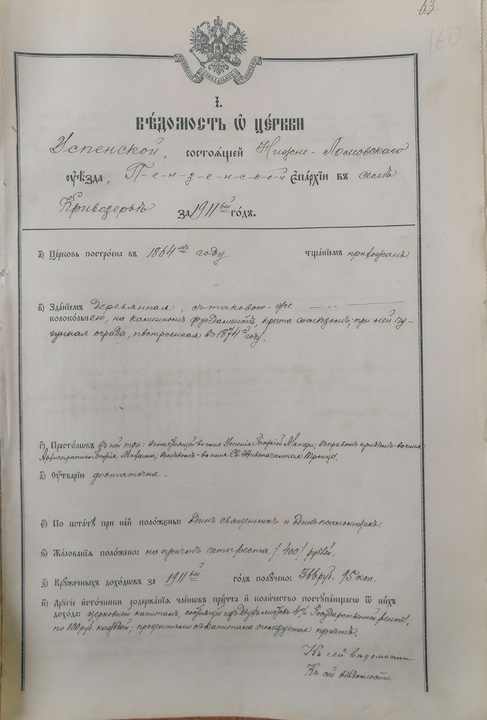 63
160
I.
ВѢДОМОСТЬ Ѿ ЦЕРКВИ
Успенской, состоящей Нижне-Ломовскаго
оуѣзда, П-е-н-з-е-н-с-к-о-й епархіи въ селѣ
Кривозерьѣ за 1911ый годъ.
а) Церковь построена въ 1864мъ году тщаніемъ прихожанъ
в) Зданіемъ деревянная, съ таковою-же
колокольнею, на каменномъ фундаментѣ, крыта желѣзомъ, при ней чу-
гунная ограда, построенная въ 1874мъ году.
г) Престоловъ въ ней три: въ настоящей во имя Успенія Божіей Матери, въ правомъ придѣлѣ-во имя
Архистратига Божія Михаила, въ лѣвомъ-во имя Св. Живоначальныя Троицы.
д) Оутварію достаточна.
е) По штату при ней положены: одинъ священникъ и одинъ псаломщикъ.
ѕ) Жалованія положено: на причтъ четыреста (400) рублей.
з) Кружечныхъ доходовъ за 1911ый годъ получено: 366 руб. 95 коп.
и) Другіе источники содержанія членовъ причта и количество поступающаго Ѿ нихъ
дохода: церковный капиталъ, состоящій изъ двухъ листовъ 4% Государственной ренты,
по 100 руб. каждый, процентами съ капитала пользуется причтъ.
Къ сей вѣдомости
Къ сей вѣдомости